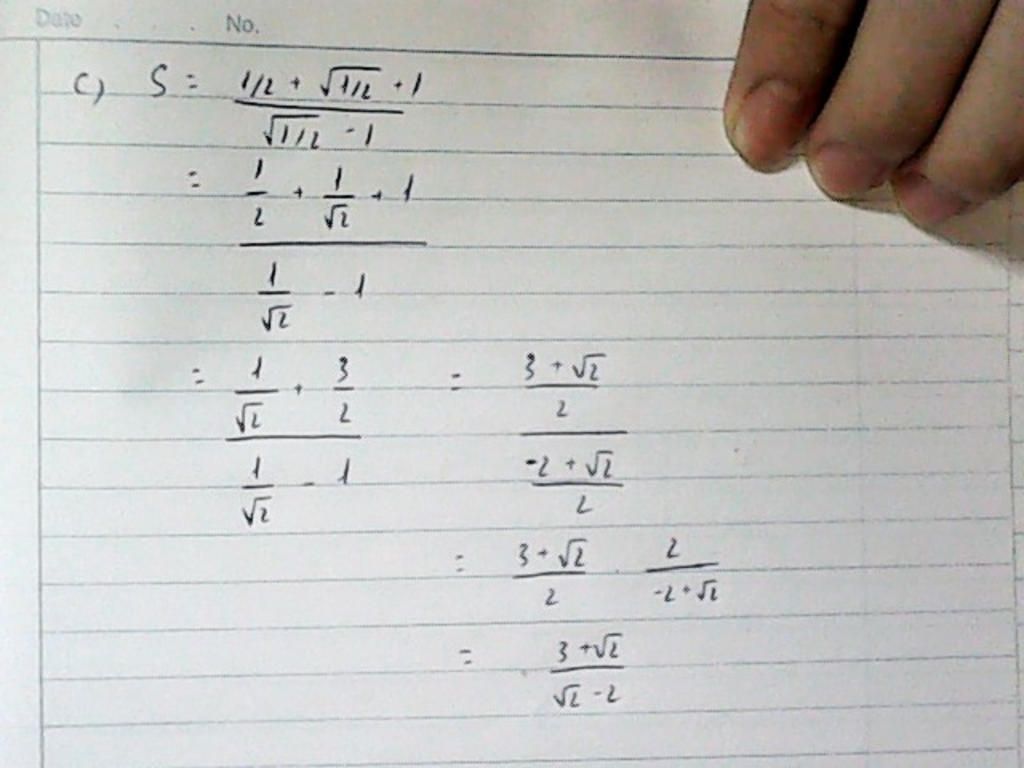 Date . . . No.
c) S = (1/2 + √(1/2) + 1) / (√(1/2) - 1)
= (1/2 + 1/√2 + 1) / (1/√2 - 1)
= (1/√2 + 3/2) / (1/√2 - 1) = ((3 + √2)/2) / ((-2 + √2)/2)
= (3 + √2)/2 . 2/(-2 + √2)
= (3 + √2)/(√2 - 2)